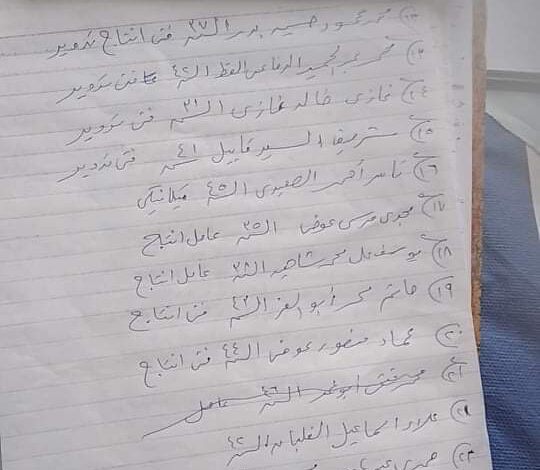 ١٢) محمد محمود حسنين بدر السن ٢٧ فنى انتاج تدوير
١٣) محمد عبدالحميد الرفاعى القط السن ٤٢ فنى تدوير
١٤) غازى خالد غازى السن ٣١ فنى تدوير
١٥) شريف السيد قابيل ٤١ سنه فنى تدوير
١٦) ناصر احمد الصعيدى السن ٤٥ ميكانيكى
١٧) مجدى مرسى عوض السن ٣٥ عامل انتاج
١٨) يوسف على محمد شاهين السن ٣٨ عامل انتاج
١٩) حاتم محمد أبو العز السن ٤٢ فنى انتاج
٢٠) عماد منصور عوض السن ٤٤ فنى انتاج
٢١) محمد السن ٤٦ عامل
٢١) علاء اسماعيل السن ٤٢
٢٢)